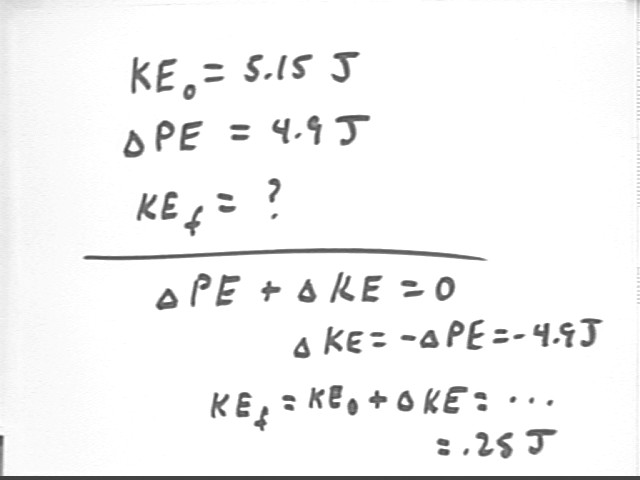 KE₀ = 5.15 J
Δ PE = 4.9 J
KE_f = ?
Δ PE + Δ KE = 0
Δ KE = -Δ PE = -4.9 J
KE_f = KE₀ + Δ KE = ...
= .25 J